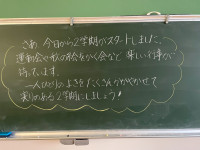 さあ 今日から2学期がスタートしました。
運動会や秋の絵をかく会など 楽しい行事が
待っています。
一人ひとりのよさをたくさんかがやかせて
実りのある2学期にしましょう!